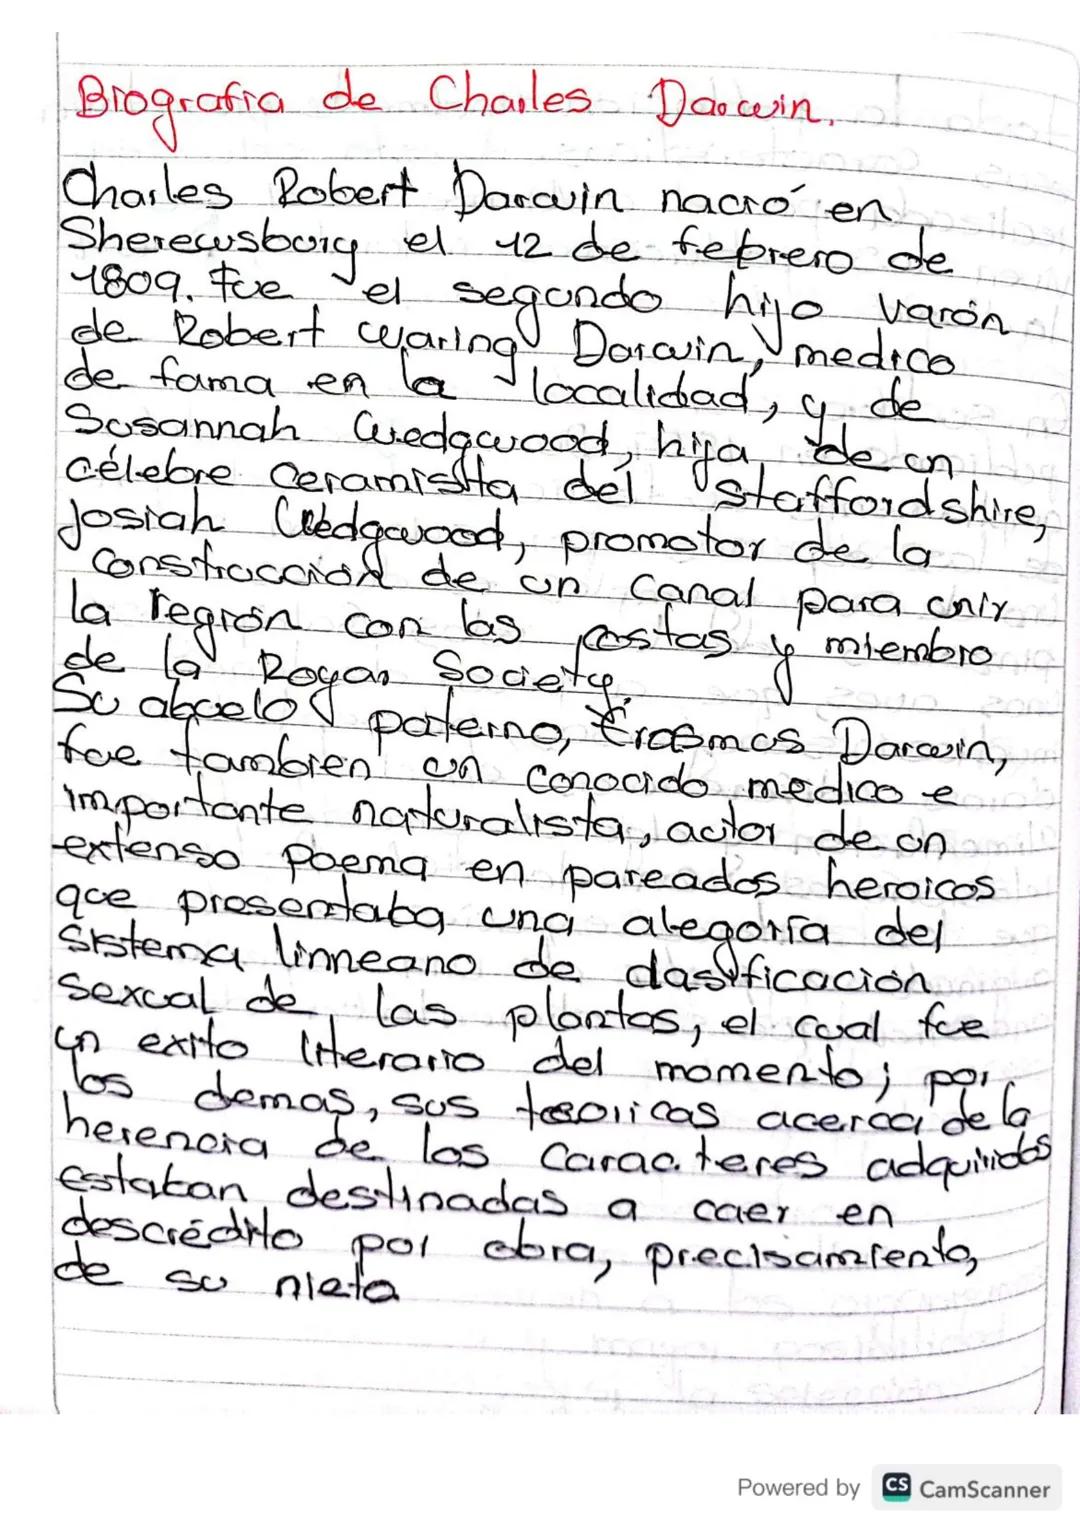 Biografia de Charles Darwin.
Charles Robert Darwin nació en
Sherewsburg el 12 de febrero de
1809. Fue el segundo hijo varón
de Robert Waring Darwin, medico
de fama en la localidad, y de
Susannah Wedgwood, hija de un
célebre ceramista del Staffordshire,
Josiah Wedgwood, promotor de la
Construcción de un Canal para unir
la región con las costas y miembro
de la Royan Society.
Su abuelo paterno, Erasmus Darwin,
fue tambien un conocido medico e
importante naturalista, autor de un
extenso poema en pareados heroicos
que presentaba una alegoría del
sistema linneano de clasificación
sexual de las plantas, el cual fue
un exito literario del momento; por
los demas, sus teoricas acerca de la
herencia de los Caracteres adquiridos
estaban destinadas a caer en
descrédito por obra, precisamiento,
de su nieto
Powered by CS CamScanner